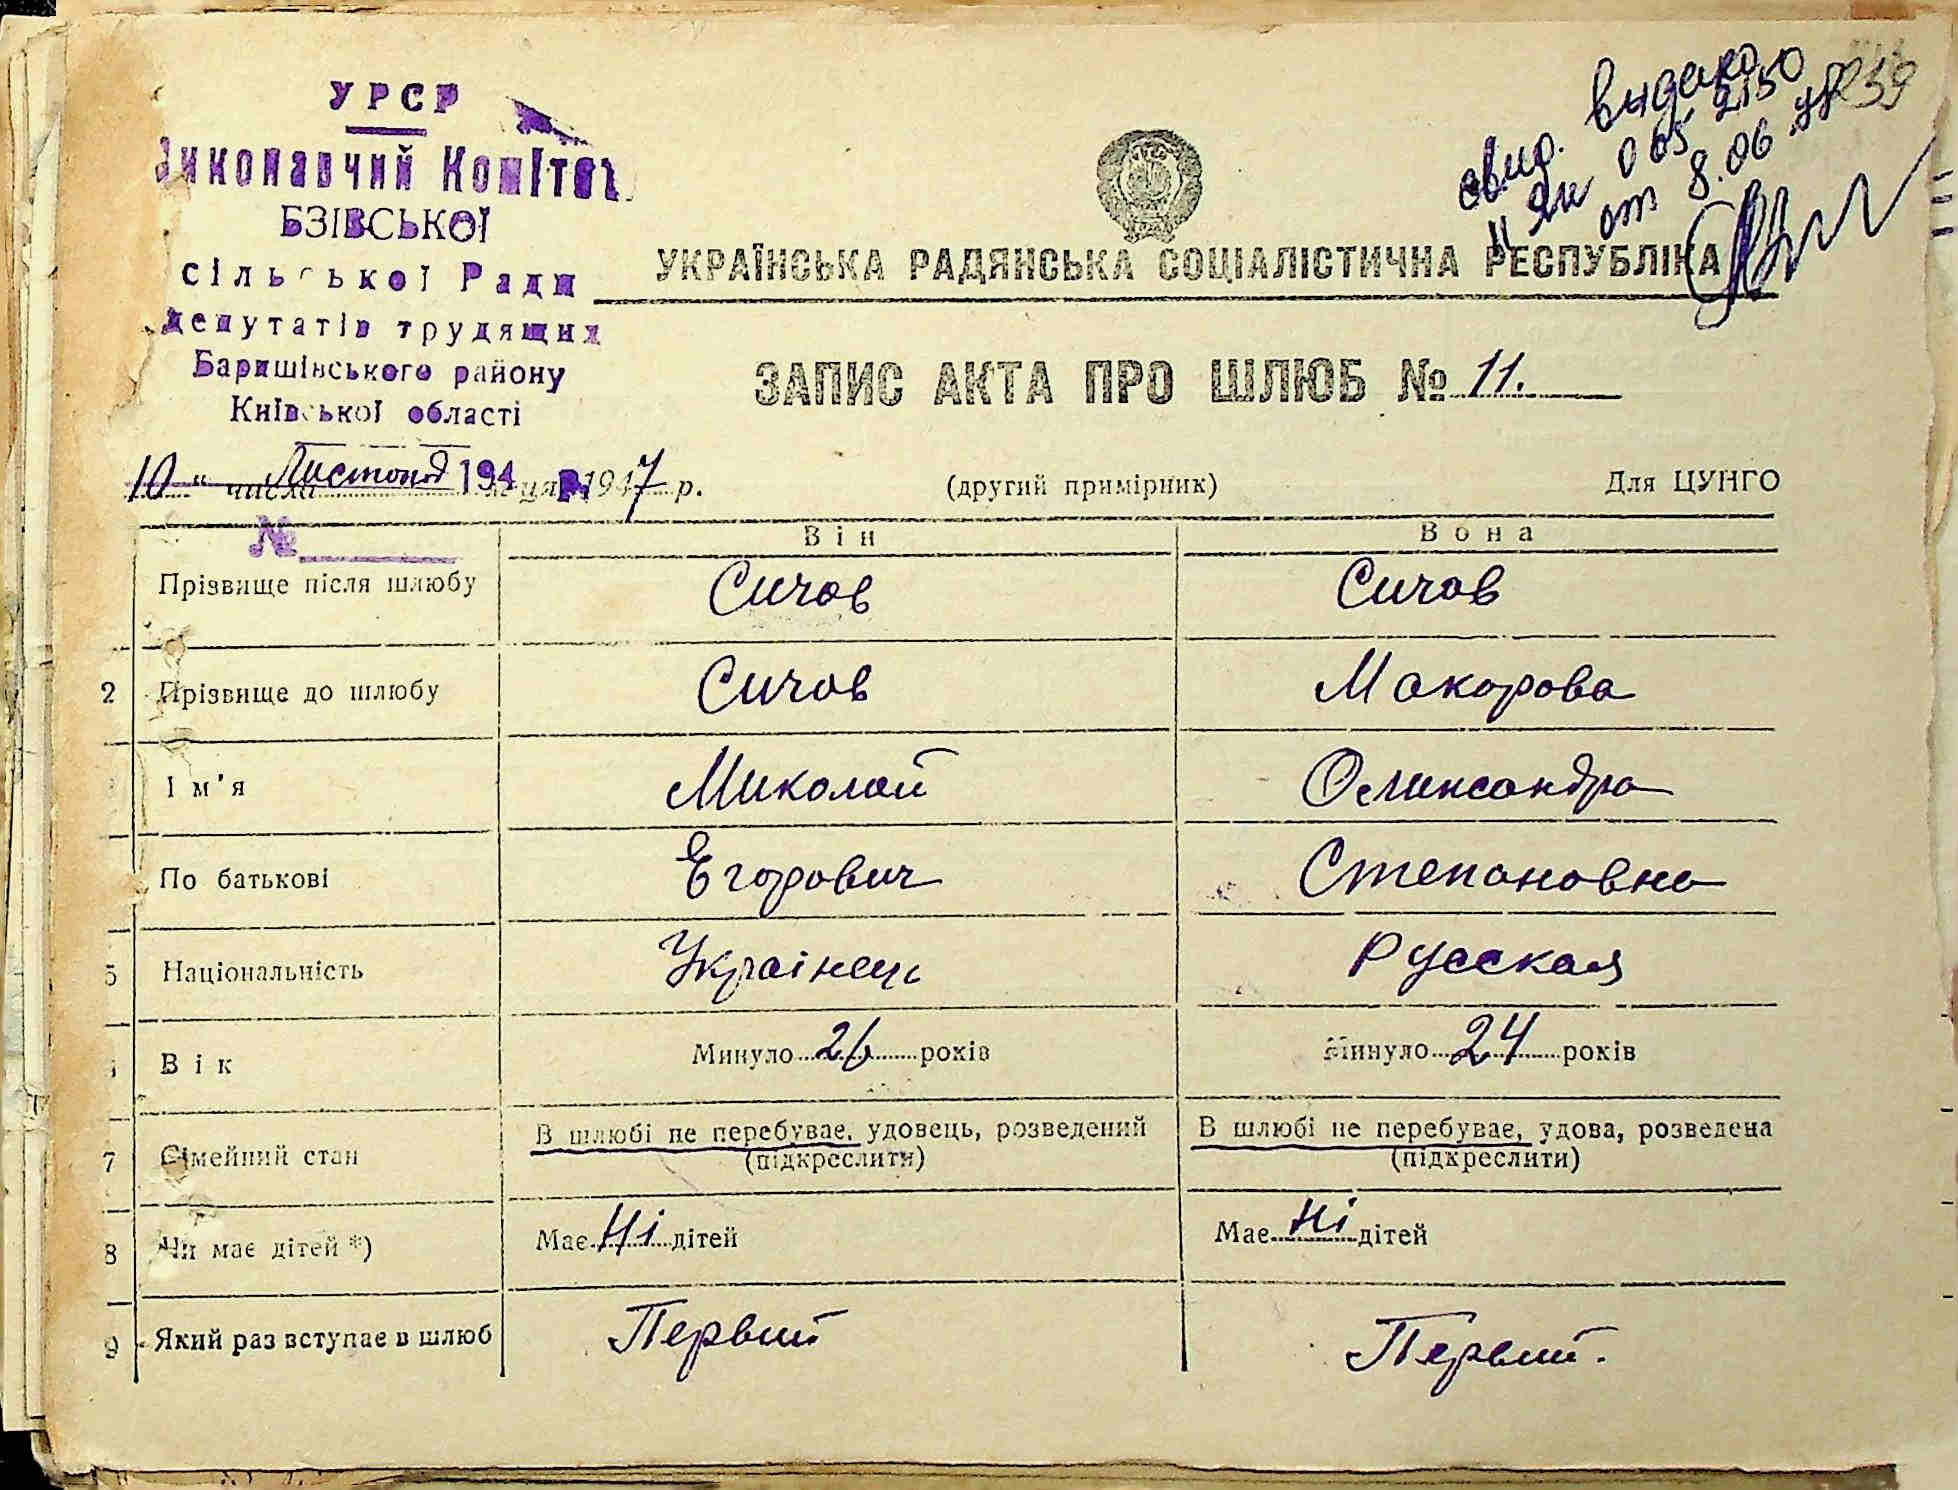 УРСР
Виконавчий Комітет
БЗІВСЬКОЇ
сільської Ради
депутатів трудящих
Баришівського району
Київської області
видано 239
свид. 2150
II ЯН 065
от 8.06
УКРАЇНСЬКА РАДЯНСЬКА СОЦІАЛІСТИЧНА РЕСПУБЛІКА
ЗАПИС АКТА ПРО ШЛЮБ № 11.
10 " числа Листопад 194 р. 1947 р. (другий примірник) Для ЦУНГО
№
Він Вона
Прізвище після шлюбу Сичов Сичов
2 Прізвище до шлюбу Сичов Макорова
Ім'я Миколай Олинсандра
По батькові Егорович Степановна
5 Національність Українець Русская
Вік Минуло 26 років Минуло 24 років
7 Сімейний стан В шлюбі не перебуває, удовець, розведений В шлюбі не перебуває, удова, розведена
(підкреслити) (підкреслити)
8 Чи має дітей *) Має Ні дітей Має Ні дітей
9 Який раз вступає в шлюб Первий Первий.